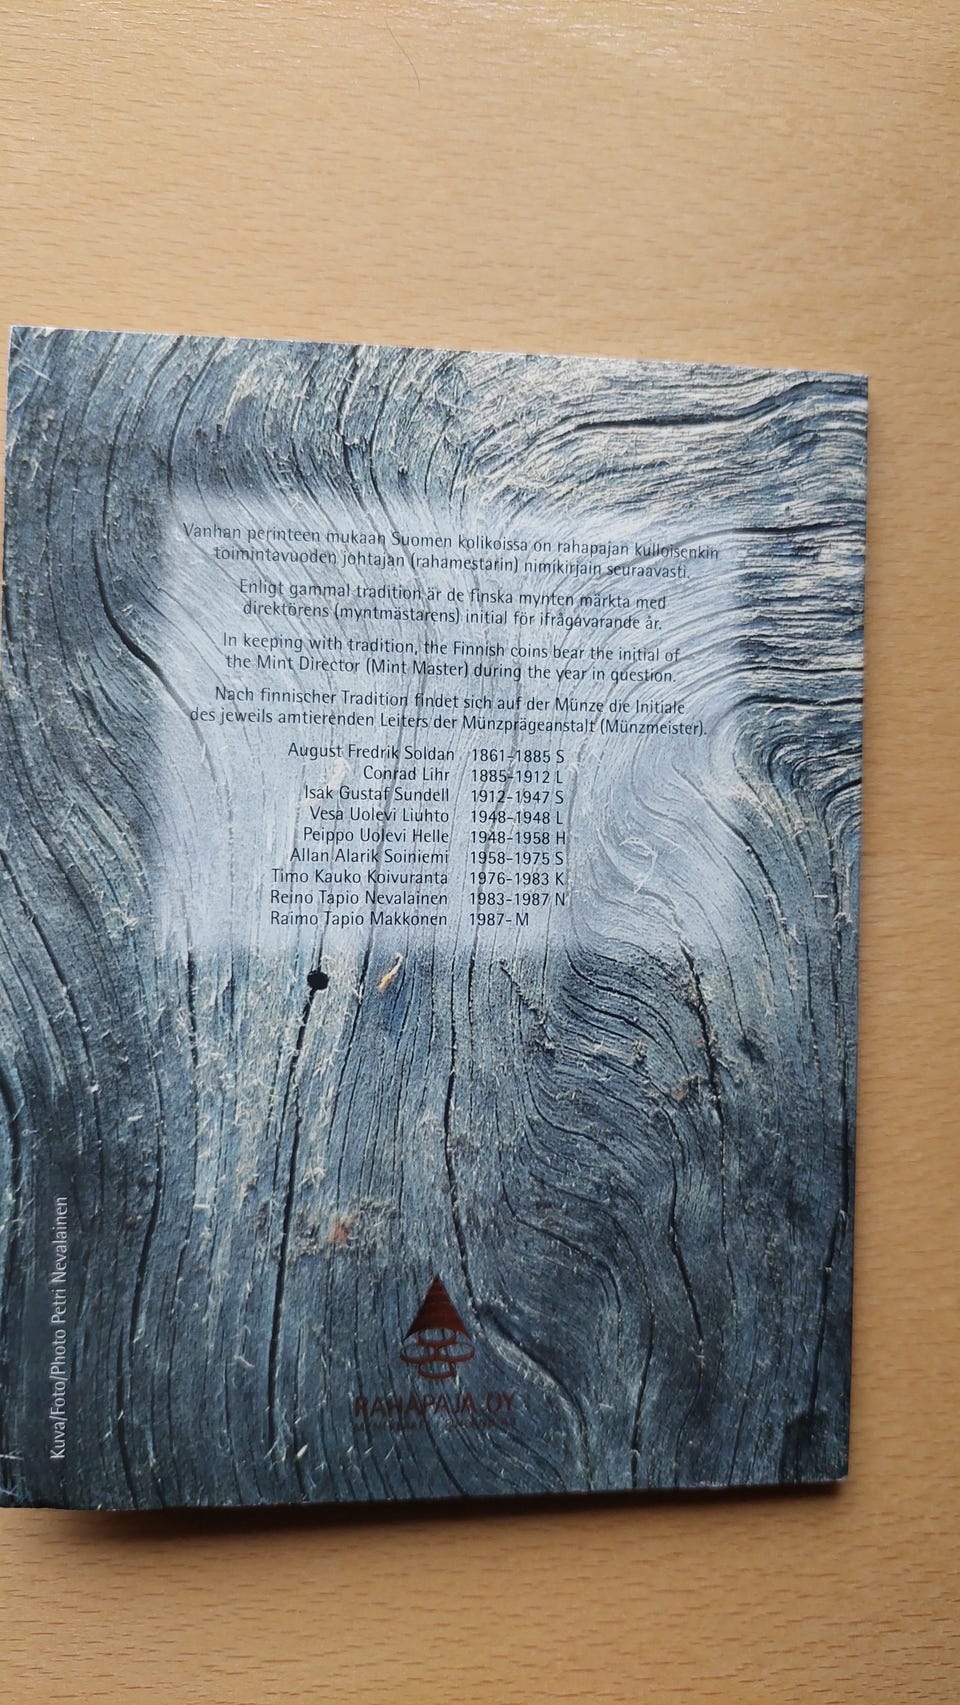 Vanhan perinteen mukaan Suomen kolikoissa on rahapajan kulloisenkin
toimintavuoden johtajan (rahamestarin) nimikirjain seuraavasti.
Enligt gammal tradition är de finska mynten märkta med
direktörens (myntmästarens) initial för ifrågavarande år.
In keeping with tradition, the Finnish coins bear the initial of
the Mint Director (Mint Master) during the year in question.
Nach finnischer Tradition findet sich auf der Münze die Initiale
des jeweils amtierenden Leiters der Münzprägeanstalt (Münzmeister).
August Fredrik Soldan 1861-1885 S
Conrad Lihr 1885-1912 L
Isak Gustaf Sundell 1912-1947 S
Vesa Uolevi Liuhto 1948-1948 L
Peippo Uolevi Helle 1948-1958 H
Allan Alarik Soiniemi 1958-1975 S
Timo Kauko Koivuranta 1976-1983 K
Reino Tapio Nevalainen 1983-1987 N
Raimo Tapio Makkonen 1987- M
Kuva/Foto/Photo Petri Nevalainen
RAHAPAJA OY